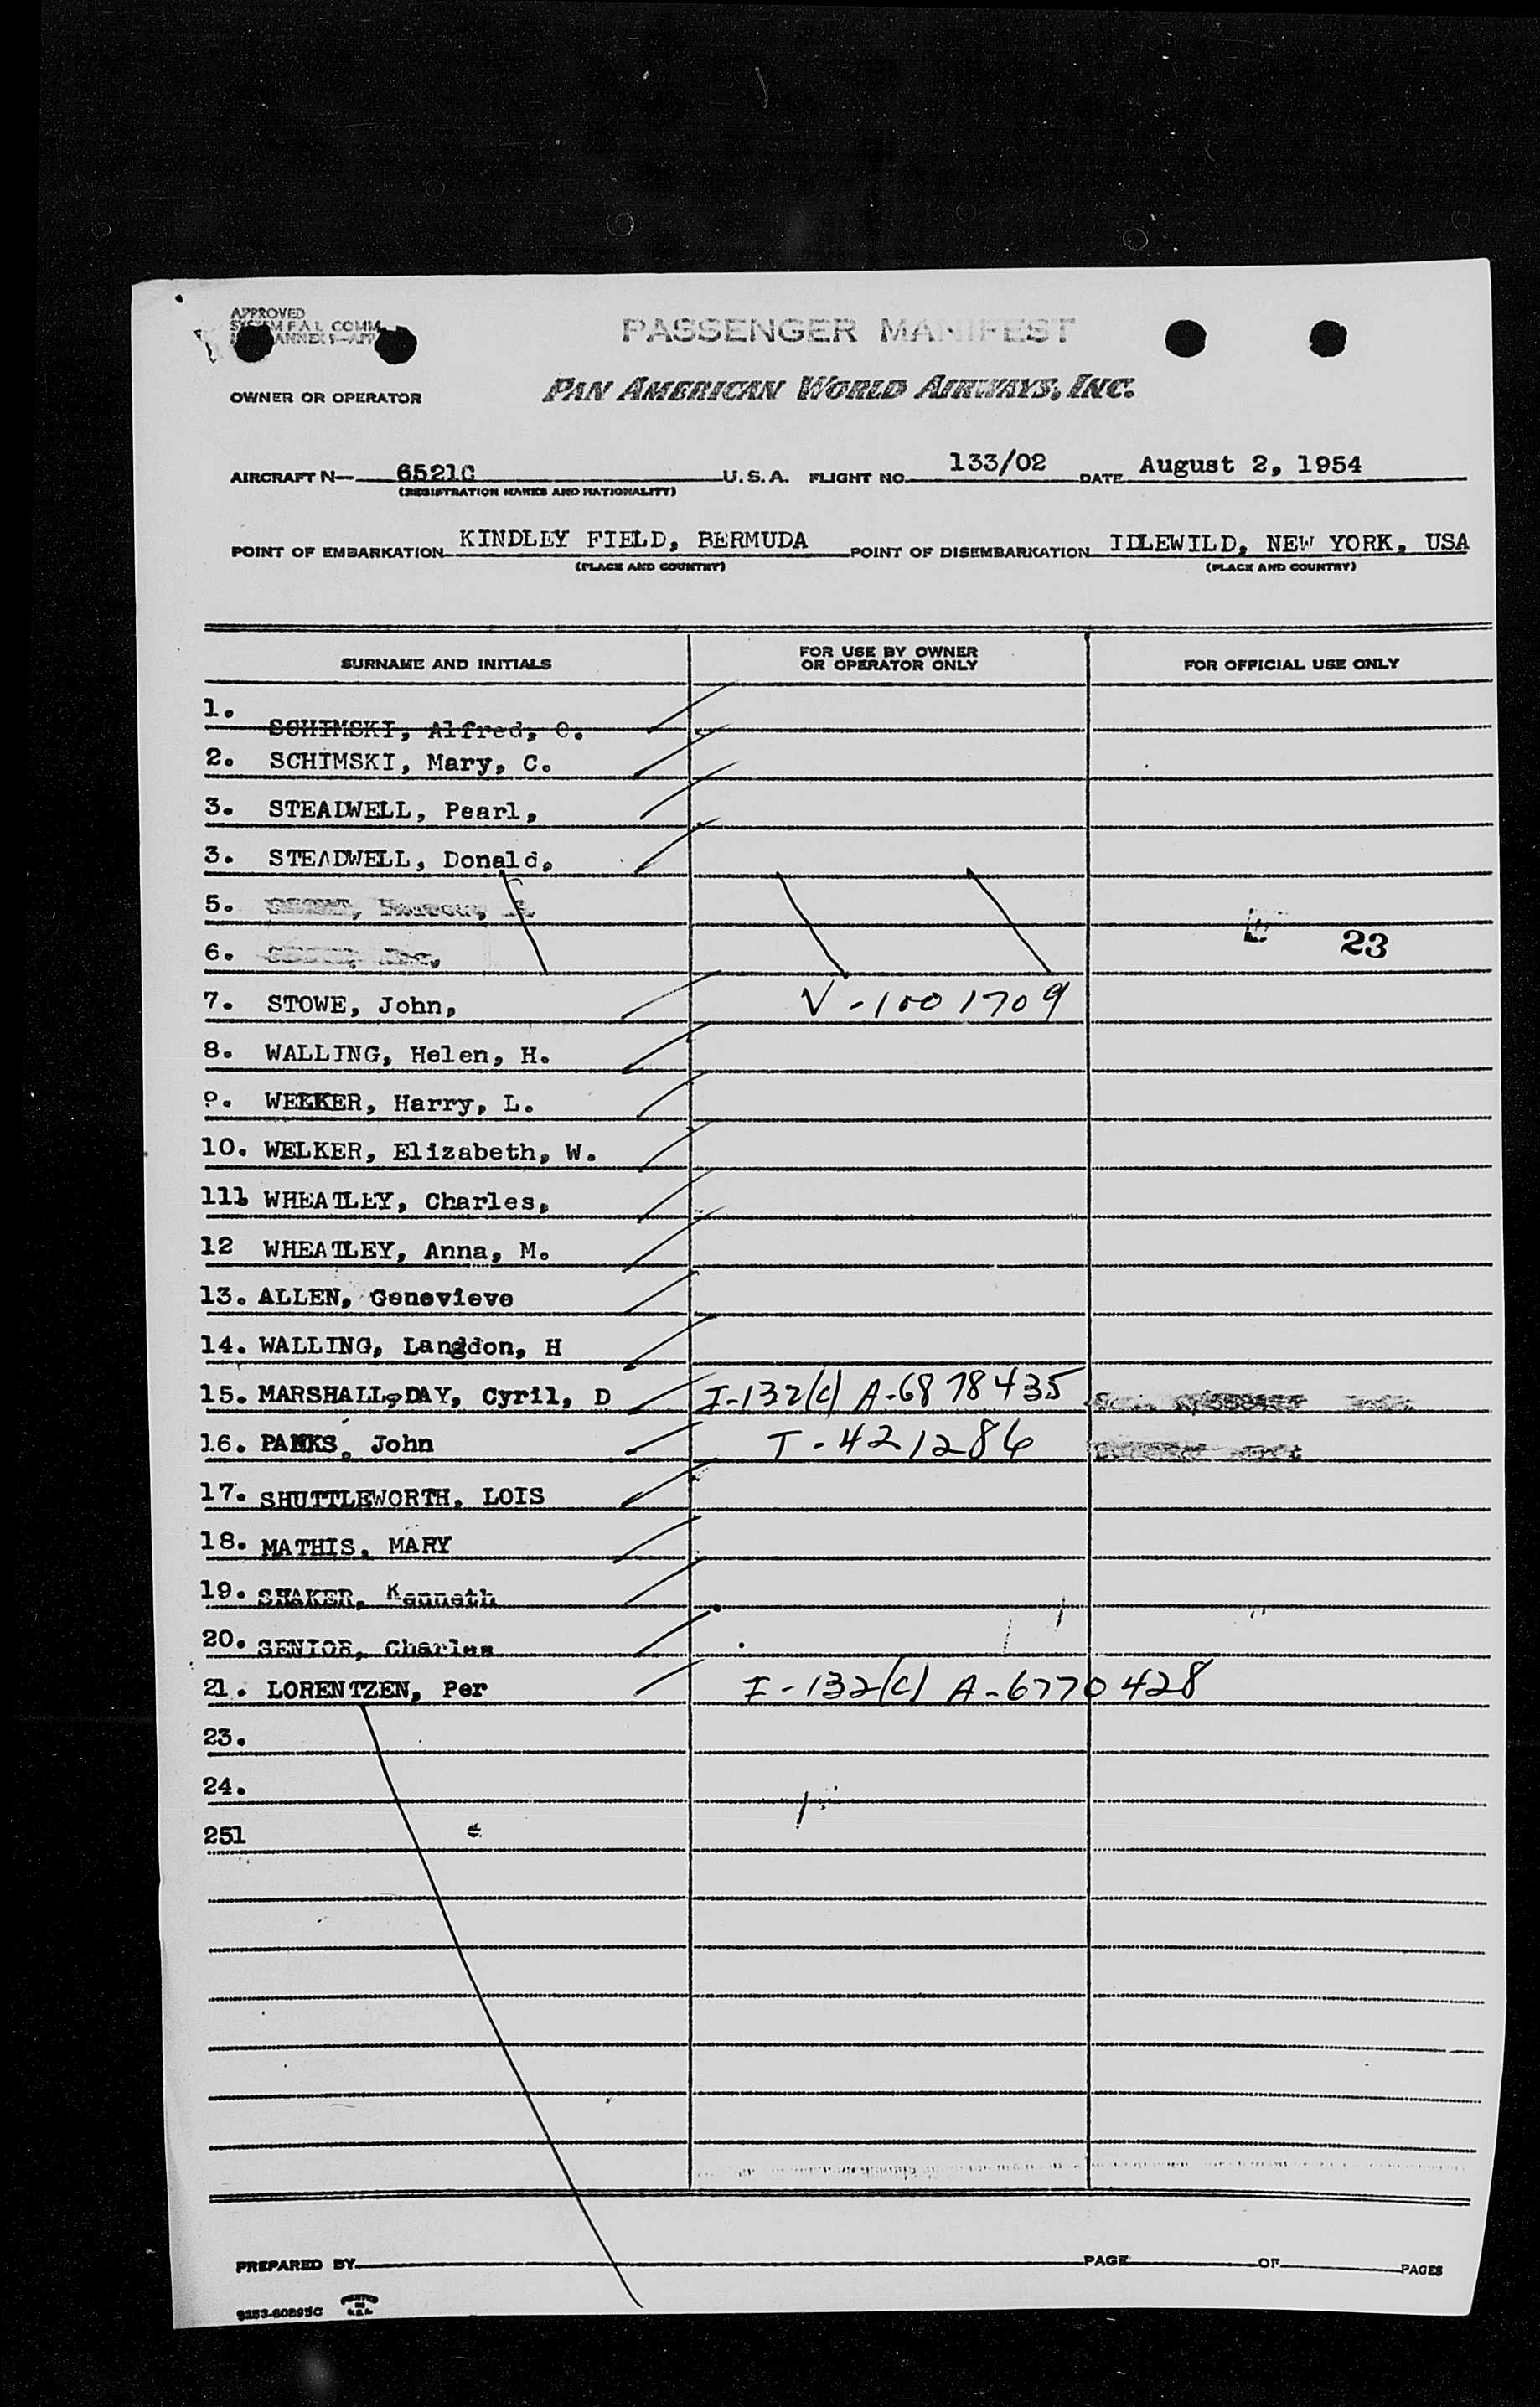 APPROVED
PASSENGER MANIFEST
OWNER OR OPERATOR
PAN AMERICAN WORLD AIRWAYS, INC.
AIRCRAFT N— 6521C U.S.A. FLIGHT NO. 133/02 DATE August 2, 1954
(REGISTRATION MARKS AND NATIONALITY)
POINT OF EMBARKATION KINDLEY FIELD, BERMUDA POINT OF DISEMBARKATION IDLEWILD, NEW YORK, USA
(PLACE AND COUNTRY) (PLACE AND COUNTRY)
SURNAME AND INITIALS FOR USE BY OWNER OR OPERATOR ONLY FOR OFFICIAL USE ONLY
1. SCHIMSKI, Alfred, C.
2. SCHIMSKI, Mary, C.
3. STEADWELL, Pearl,
3. STEADWELL, Donald,
5.
6. 23
7. STOWE, John, V-1001709
8. WALLING, Helen, H.
9. WELKER, Harry, L.
10. WELKER, Elizabeth, W.
111 WHEATLEY, Charles,
12 WHEATLEY, Anna, M.
13. ALLEN, Genevieve
14. WALLING, Langdon, H
15. MARSHALL-DAY, Cyril, D I-132(c) A-6878435
16. John T-421286
17. SHUTTLEWORTH, LOIS
18. MATHIS, MARY
19. SHAKER, Kenneth
20. SENIOR, Charles
21. LORENTZEN, Per I-132(c) A-6770428
23.
24.
251
PREPARED BY PAGE OF PAGES